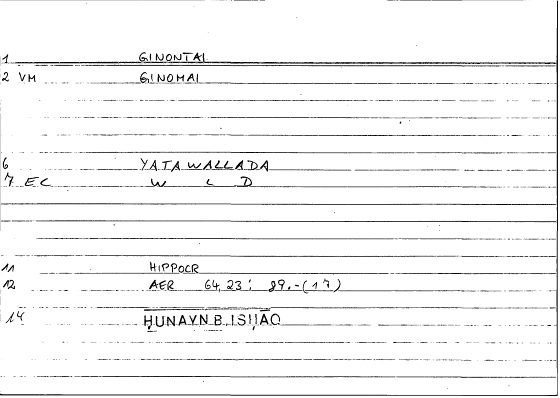 1 GINONTAI
2 VM GINOMAI
6 YATAWALLADA
7 EC W L D
11 HIPPOCR
12 AER 64,23: 89.-(17)
14 ḤUNAYN B. ISḤĀQ